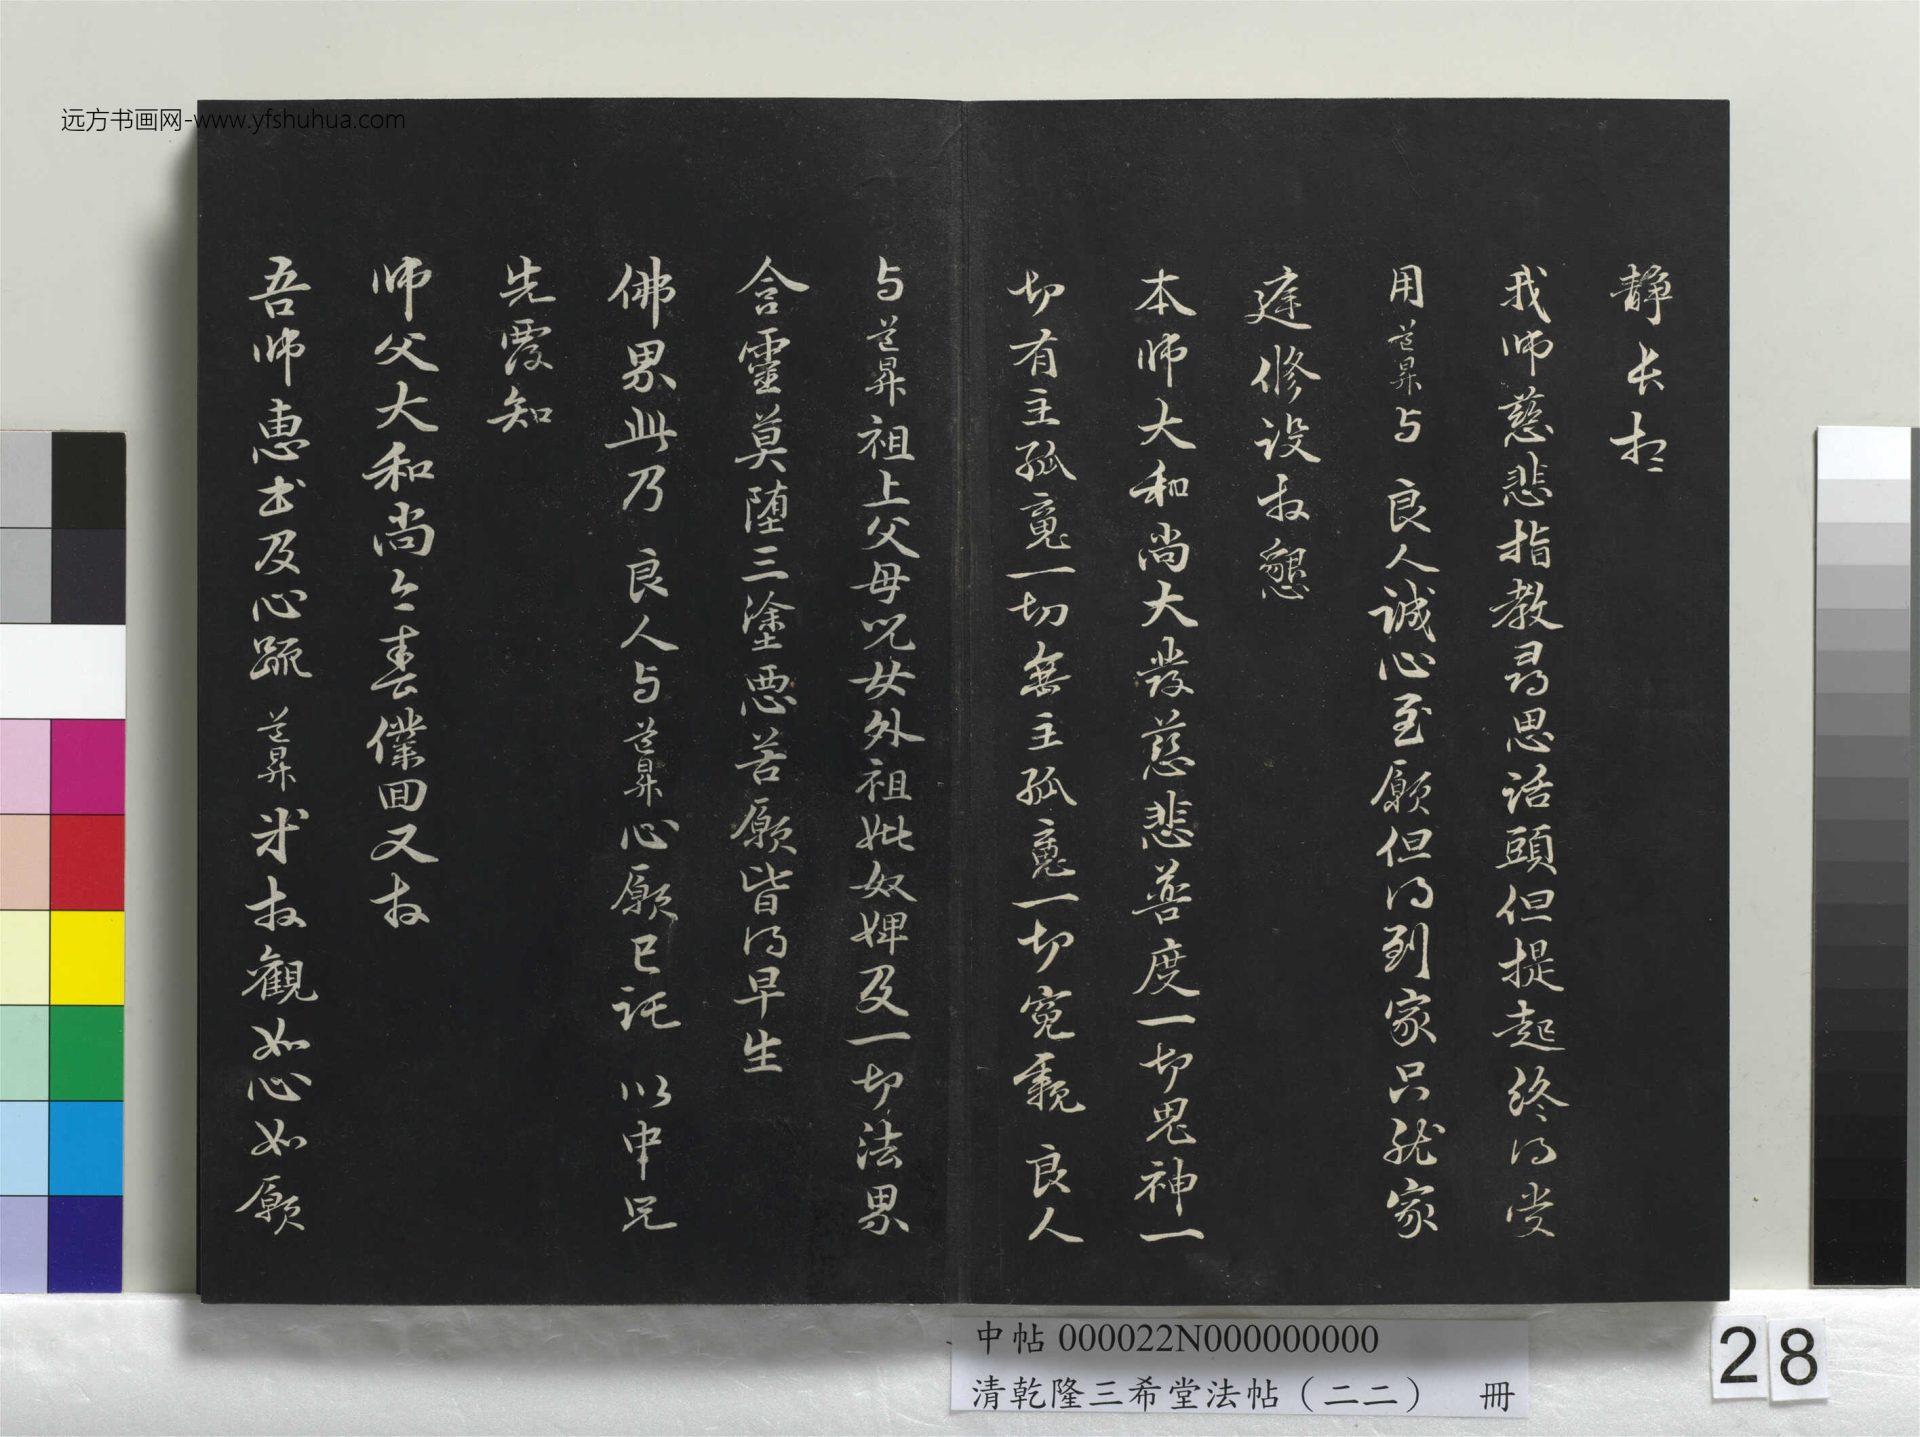 远方书画网-www.yfshuhua.com
静长老
我师慈悲指教寻思话頭但提起终得受
用道昇与 良人誠心至願但得到家只就家
庭修设拜懇
本师大和尚大發慈悲普度一切鬼神一
切有主孤魂一切無主孤魂一切冤親 良人
与道昇祖上父母兒女外祖妣奴婢及一切法界
含靈莫堕三塗恶苦願皆得早生
佛界此乃 良人与道昇心願已託 以中兄
先覆知
师父大和尚今春僕回又拜
吾师惠书及心疏 道昇拜觀如心如願
中帖 000022N000000000
清乾隆三希堂法帖（二二） 冊
28